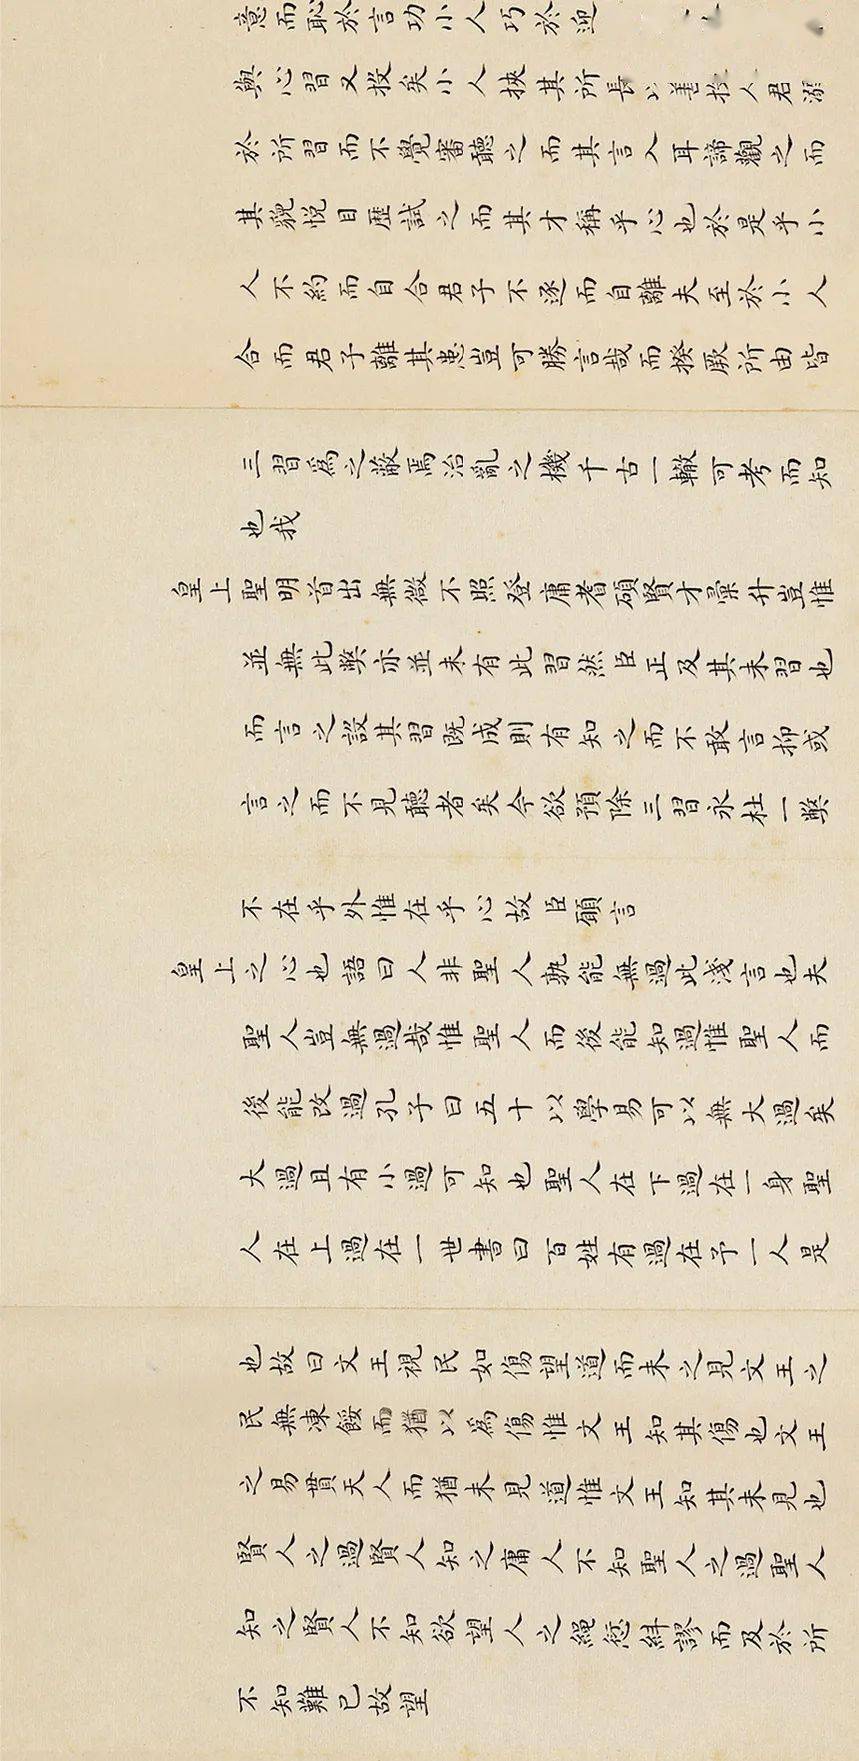 意而恥於言功小人巧於迎
與心習又投矣小人挾其所長以善投人君溺
於所習而不覺審聽之而其言入耳諦觀之而
其貌悅目歷試之而其才稱乎心也於是乎小
人不約而自合君子不逐而自離夫至於小人
合而君子離其患豈可勝言哉而揆厥所由皆
三習爲之蔽焉治亂之機千古一轍可考而知
也我
皇上聖明首出無微不照登庸耆碩賢才彙升豈惟
並無此弊亦並未有此習然臣正及其未習也
而言之設其習既成則有知之而不敢言抑或
言之而不見聽者矣今欲預除三習永杜一弊
不在乎外惟在乎心故臣願言
皇上之心也語曰人非聖人孰能無過此淺言也夫
聖人豈無過哉惟聖人而後能知過惟聖人而
後能改過孔子曰五十以學易可以無大過矣
大過且有小過可知也聖人在下過在一身聖
人在上過在一世書曰百姓有過在予一人是
也故曰文王視民如傷望道而未之見文王之
民無凍餒而猶以爲傷惟文王知其傷也文王
之易貫天人而猶未見道惟文王知其未見也
賢人之過賢人知之庸人不知聖人之過聖人
知之賢人不知欲望人之繩愆糾謬而及於所
不知難已故望